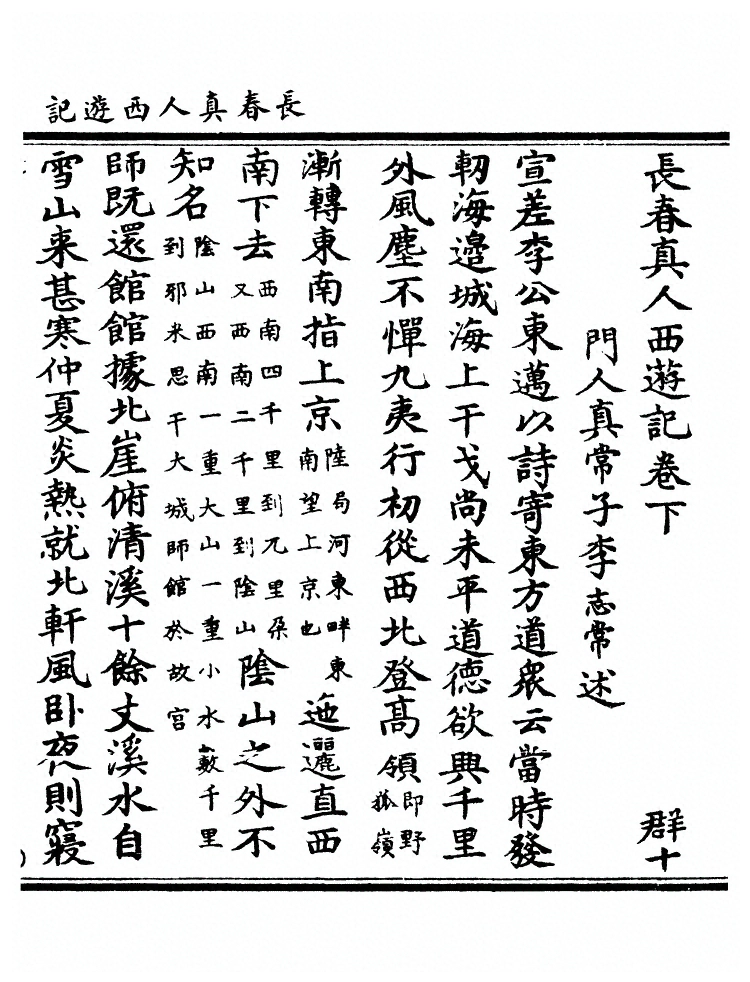 長春真人西遊記
長春真人西遊記卷下 群十
門人真常子李志常述
宣差李公東邁以詩寄東方道衆云當時發
軔海邊城海上干戈尚未平道德欲興千里
外風塵不憚九夷行初從西北登高領即野狐嶺
漸轉東南指上京陸局河東畔東南望上京也迤邐直西
南下去西南四千里到兀里朶又西南二千里到陰山陰山之外不
知名陰山西南一重大山一重小水數千里到邪米思干大城師館於故宮
師既還館館據北崖俯清溪十餘丈溪水自
雪山来甚寒仲夏炎熱就北軒風卧夜則寢